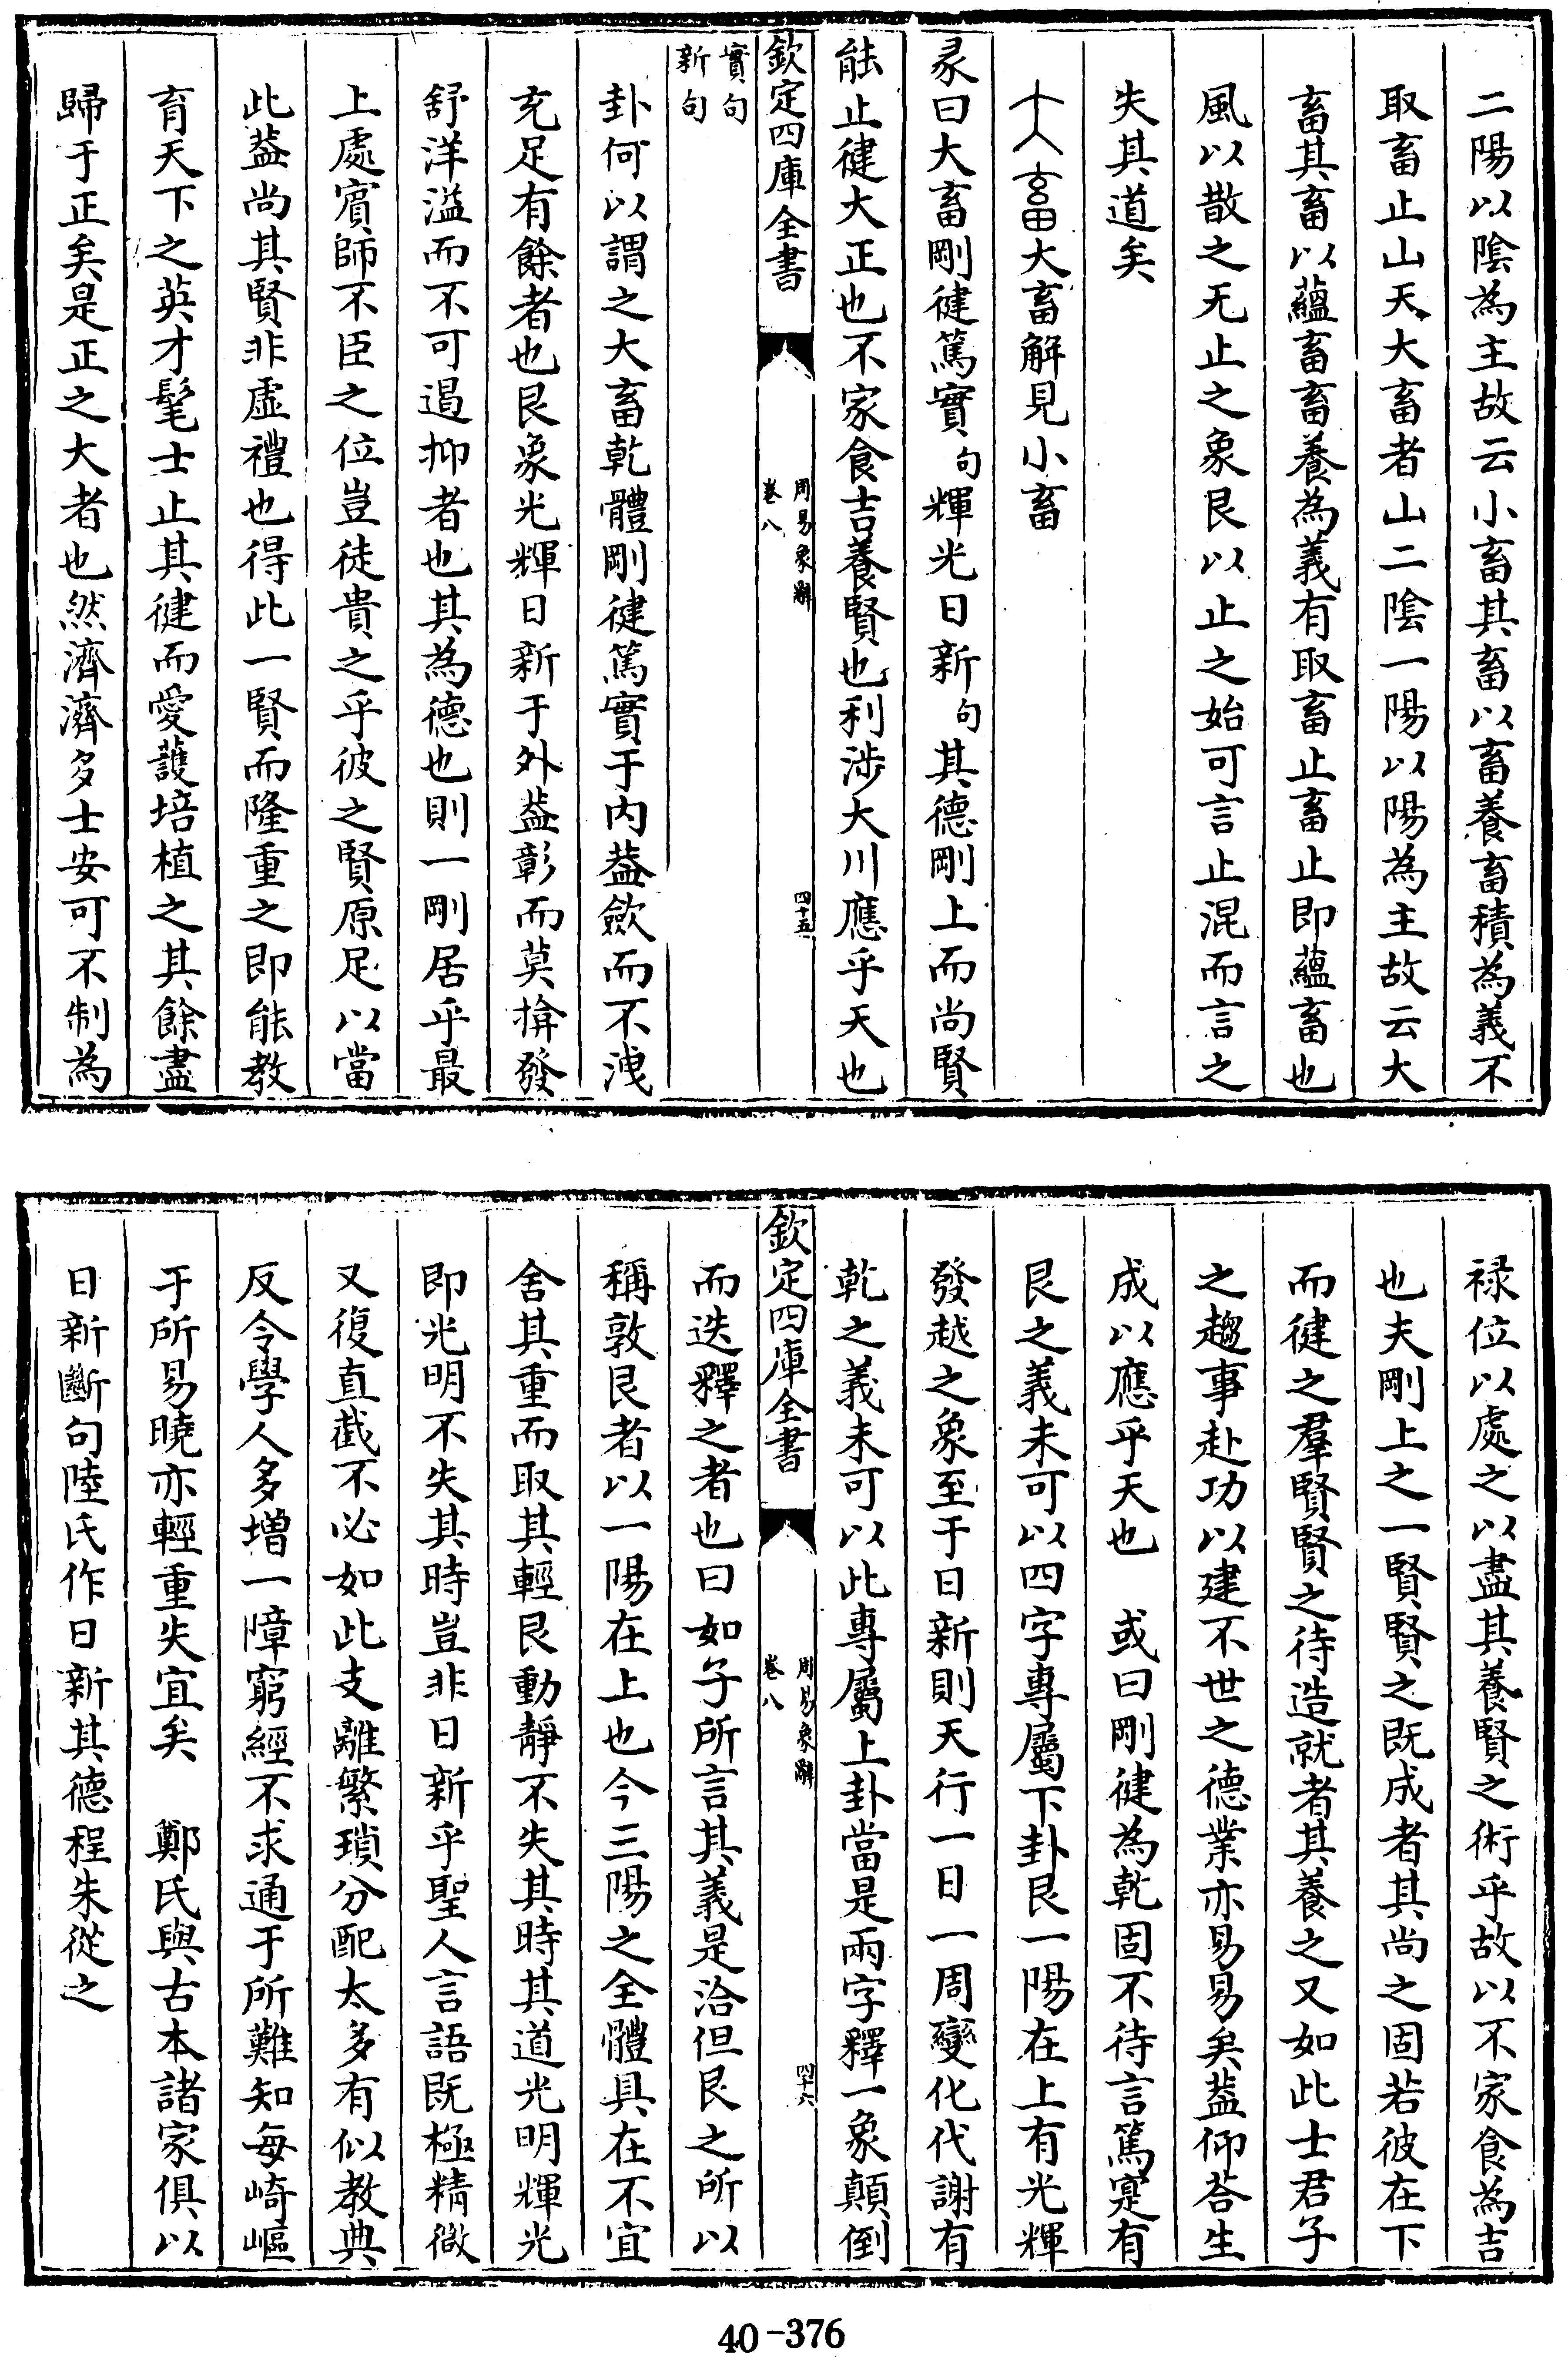 二陽以陰為主故云小畜其畜以畜養畜積為義不
取畜止山天大畜者山二陰一陽以陽為主故云大
畜其畜以蘊畜畜養為義有取畜止畜止即蘊畜也
風以散之无止之象艮以止之始可言止混而言之
失其道矣
大畜解見小畜
彖曰大畜剛健篤實句輝光日新句其德剛上而尚賢
能止健大正也不家食吉養賢也利涉大川應乎天也
欽定四庫全書
周易象辭
卷八
四十五
實句
新句
卦何以謂之大畜乾體剛健篤實于内葢歛而不洩
充足有餘者也艮象光輝日新于外葢彰而莫揜發
舒洋溢而不可遏抑者也其為德也則一剛居乎最
上處賓師不臣之位豈徒貴之乎彼之賢原足以當
此葢尚其賢非虚禮也得此一賢而隆重之即能教
育天下之英才髦士止其健而愛護培植之其餘盡
歸于正矣是正之大者也然濟濟多士安可不制為
禄位以處之以盡其養賢之術乎故以不家食為吉
也夫剛上之一賢賢之既成者其尚之固若彼在下
而健之羣賢賢之待造就者其養之又如此士君子
之趨事赴功以建不世之德業亦易易矣葢仰荅生
成以應乎天也　或曰剛健為乾固不待言篤寔有
艮之義未可以四字專屬下卦艮一陽在上有光輝
發越之象至于日新則天行一日一周變化代謝有
乾之義未可以此專屬上卦當是兩字釋一象顛倒
欽定四庫全書
周易象辭
卷八
四十六
而迭釋之者也曰如子所言其義是洽但艮之所以
稱敦艮者以一陽在上也今三陽之全體具在不宜
舍其重而取其輕艮動靜不失其時其道光明輝光
即光明不失其時豈非日新乎聖人言語既極精微
又復直截不必如此支離繁瑣分配太多有似教典
反令學人多增一障窮經不求通于所難知每崎嶇
于所易曉亦輕重失宜矣　鄭氏與古本諸家俱以
日新斷句陸氏作日新其德程朱從之
40-376